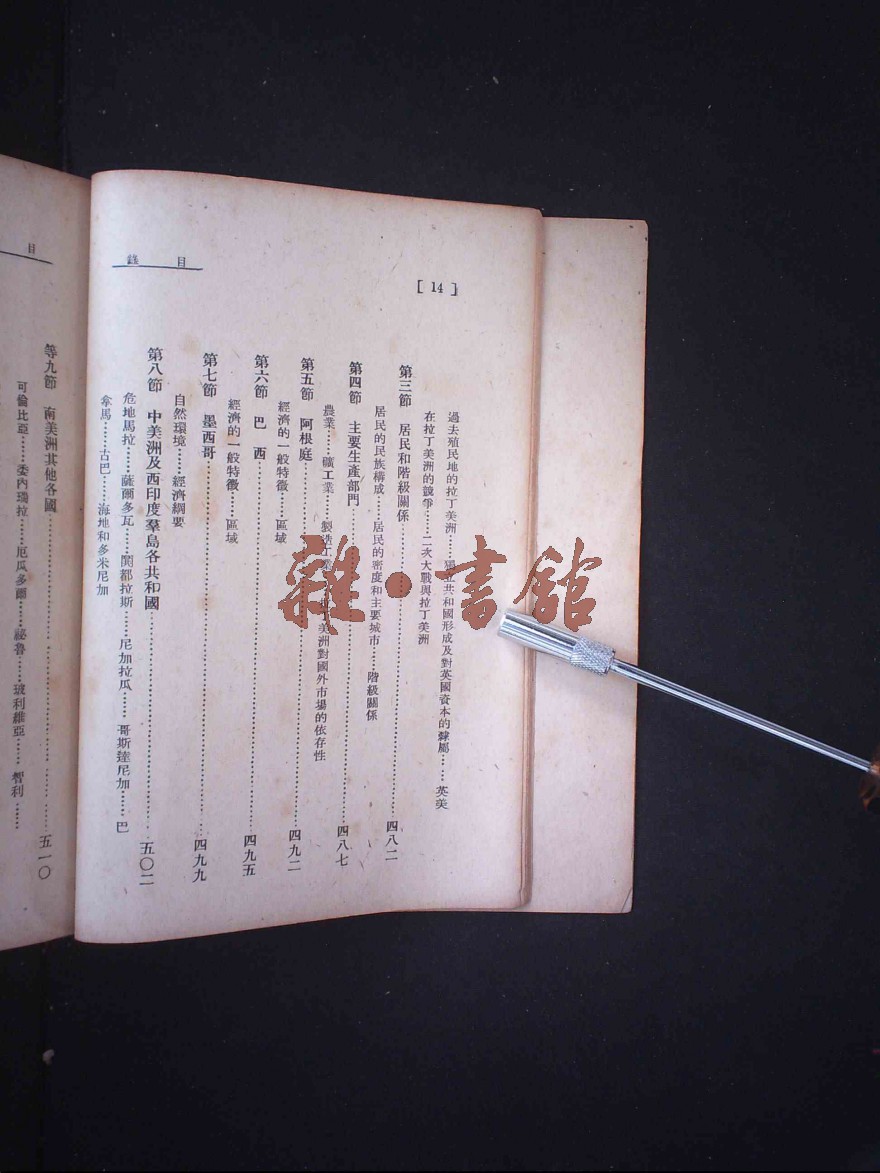 目錄
[ 14 ]
過去殖民地的拉丁美洲……獨立共和國形成及對英國資本的隸屬……英美
在拉丁美洲的競爭……二次大戰與拉丁美洲
第三節 居民和階級關係……四八二
居民的民族構成……居民的密度和主要城市……階級關係
第四節 主要生產部門……四八七
農業……礦工業……製造工業……美洲對國外市場的依存性
第五節 阿根庭……四九二
經濟的一般特徵……區域
第六節 巴西……四九五
經濟的一般特徵……區域
第七節 墨西哥……四九九
自然環境……經濟綱要
第八節 中美洲及西印度羣島各共和國……五〇二
危地馬拉……薩爾多瓦……閔都拉斯……尼加拉瓜……哥斯達尼加……巴
拿馬……古巴……海地和多米尼加
目
等九節 南美洲其他各國……五一〇
可倫比亞……委內瑞拉……厄瓜多爾……祕魯……玻利維亞……智利……
雜·書館